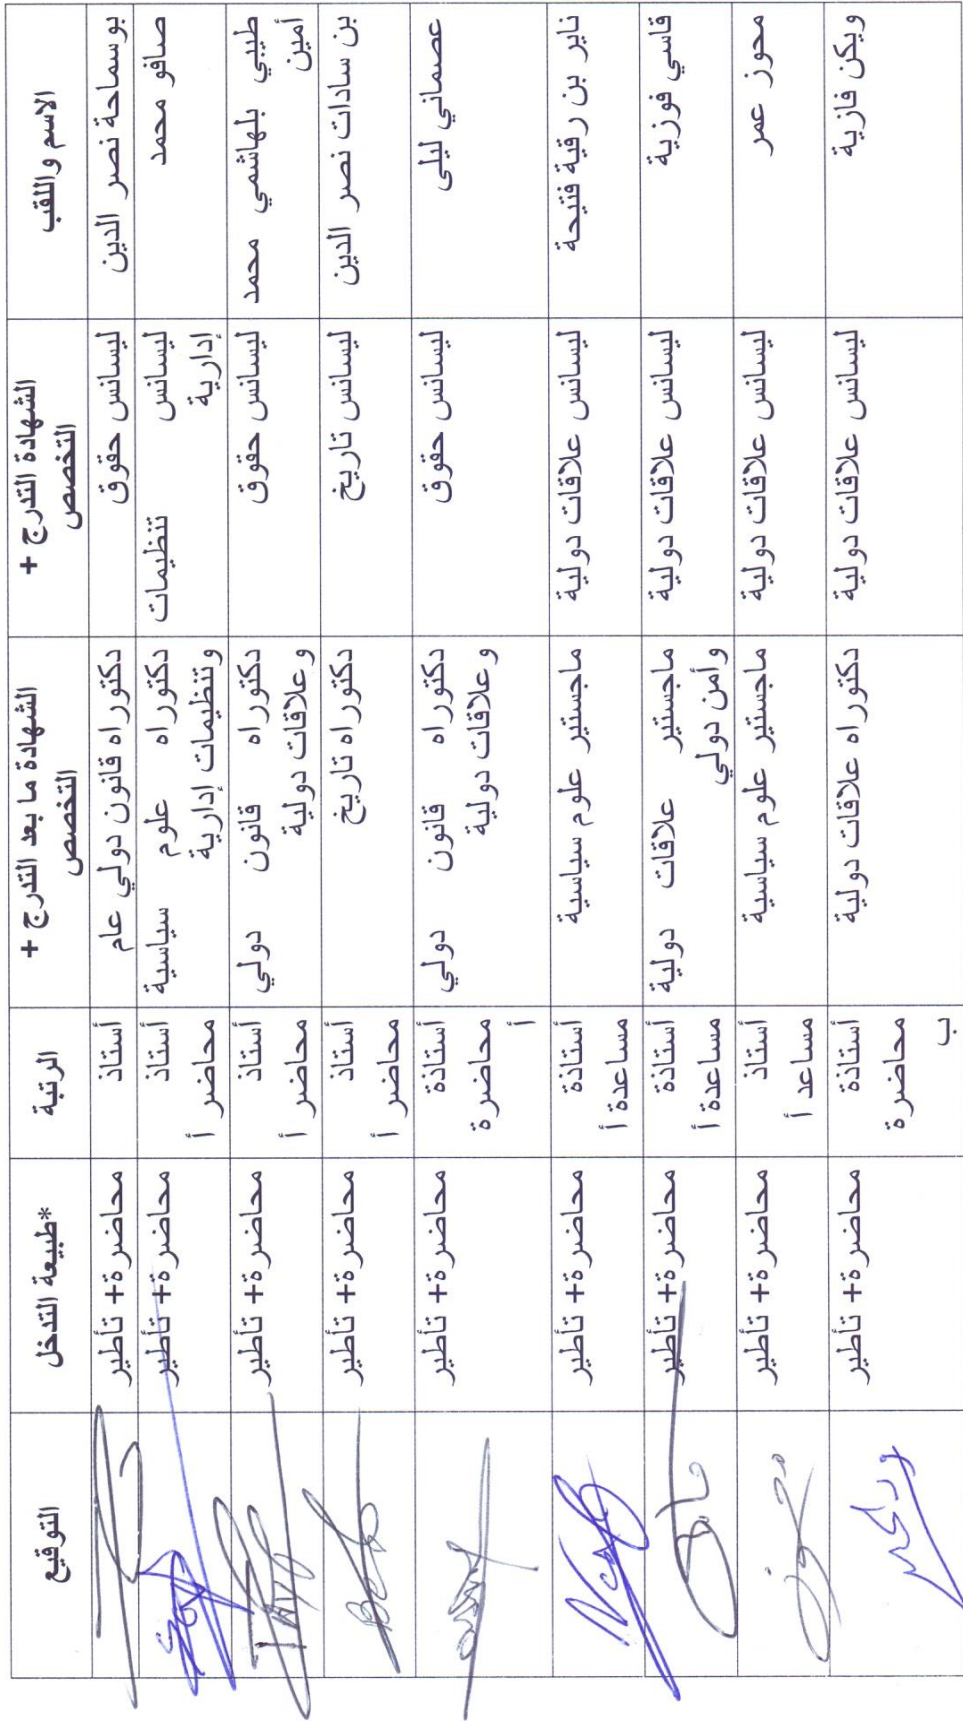 الاسم واللقب
الشهادة التدرج +
التخصص
الشهادة ما بعد التدرج +
التخصص
الرتبة
*طبيعة التدخل
التوقيع
بوسماحة نصر الدين
ليسانس حقوق
دكتوراه قانون دولي عام
أستاذ
محاضرة+ تأطير
صافو محمد
ليسانس تنظيمات
إدارية
دكتوراه علوم سياسية
وتنظيمات إدارية
أستاذ
محاضر أ
محاضرة+ تأطير
طيبي بلهاشمي محمد
أمين
ليسانس حقوق
دكتوراه قانون دولي
وعلاقات دولية
أستاذ
محاضر أ
محاضرة+ تأطير
بن سادات نصر الدين
ليسانس تاريخ
دكتوراه تاريخ
أستاذ
محاضر أ
محاضرة+ تأطير
عصماني ليلى
ليسانس حقوق
دكتوراه قانون دولي
وعلاقات دولية
أستاذة
محاضرة
أ
محاضرة+ تأطير
ناير بن رقية فتيحة
ليسانس علاقات دولية
ماجستير علوم سياسية
أستاذة
مساعدة أ
محاضرة+ تأطير
قاسي فوزية
ليسانس علاقات دولية
ماجستير علاقات دولية
وأمن دولي
أستاذة
مساعدة أ
محاضرة+ تأطير
محوز عمر
ليسانس علاقات دولية
ماجستير علوم سياسية
أستاذ
مساعد أ
محاضرة+ تأطير
ويكن فازية
ليسانس علاقات دولية
دكتوراه علاقات دولية
أستاذة
محاضرة
ب
محاضرة+ تأطير